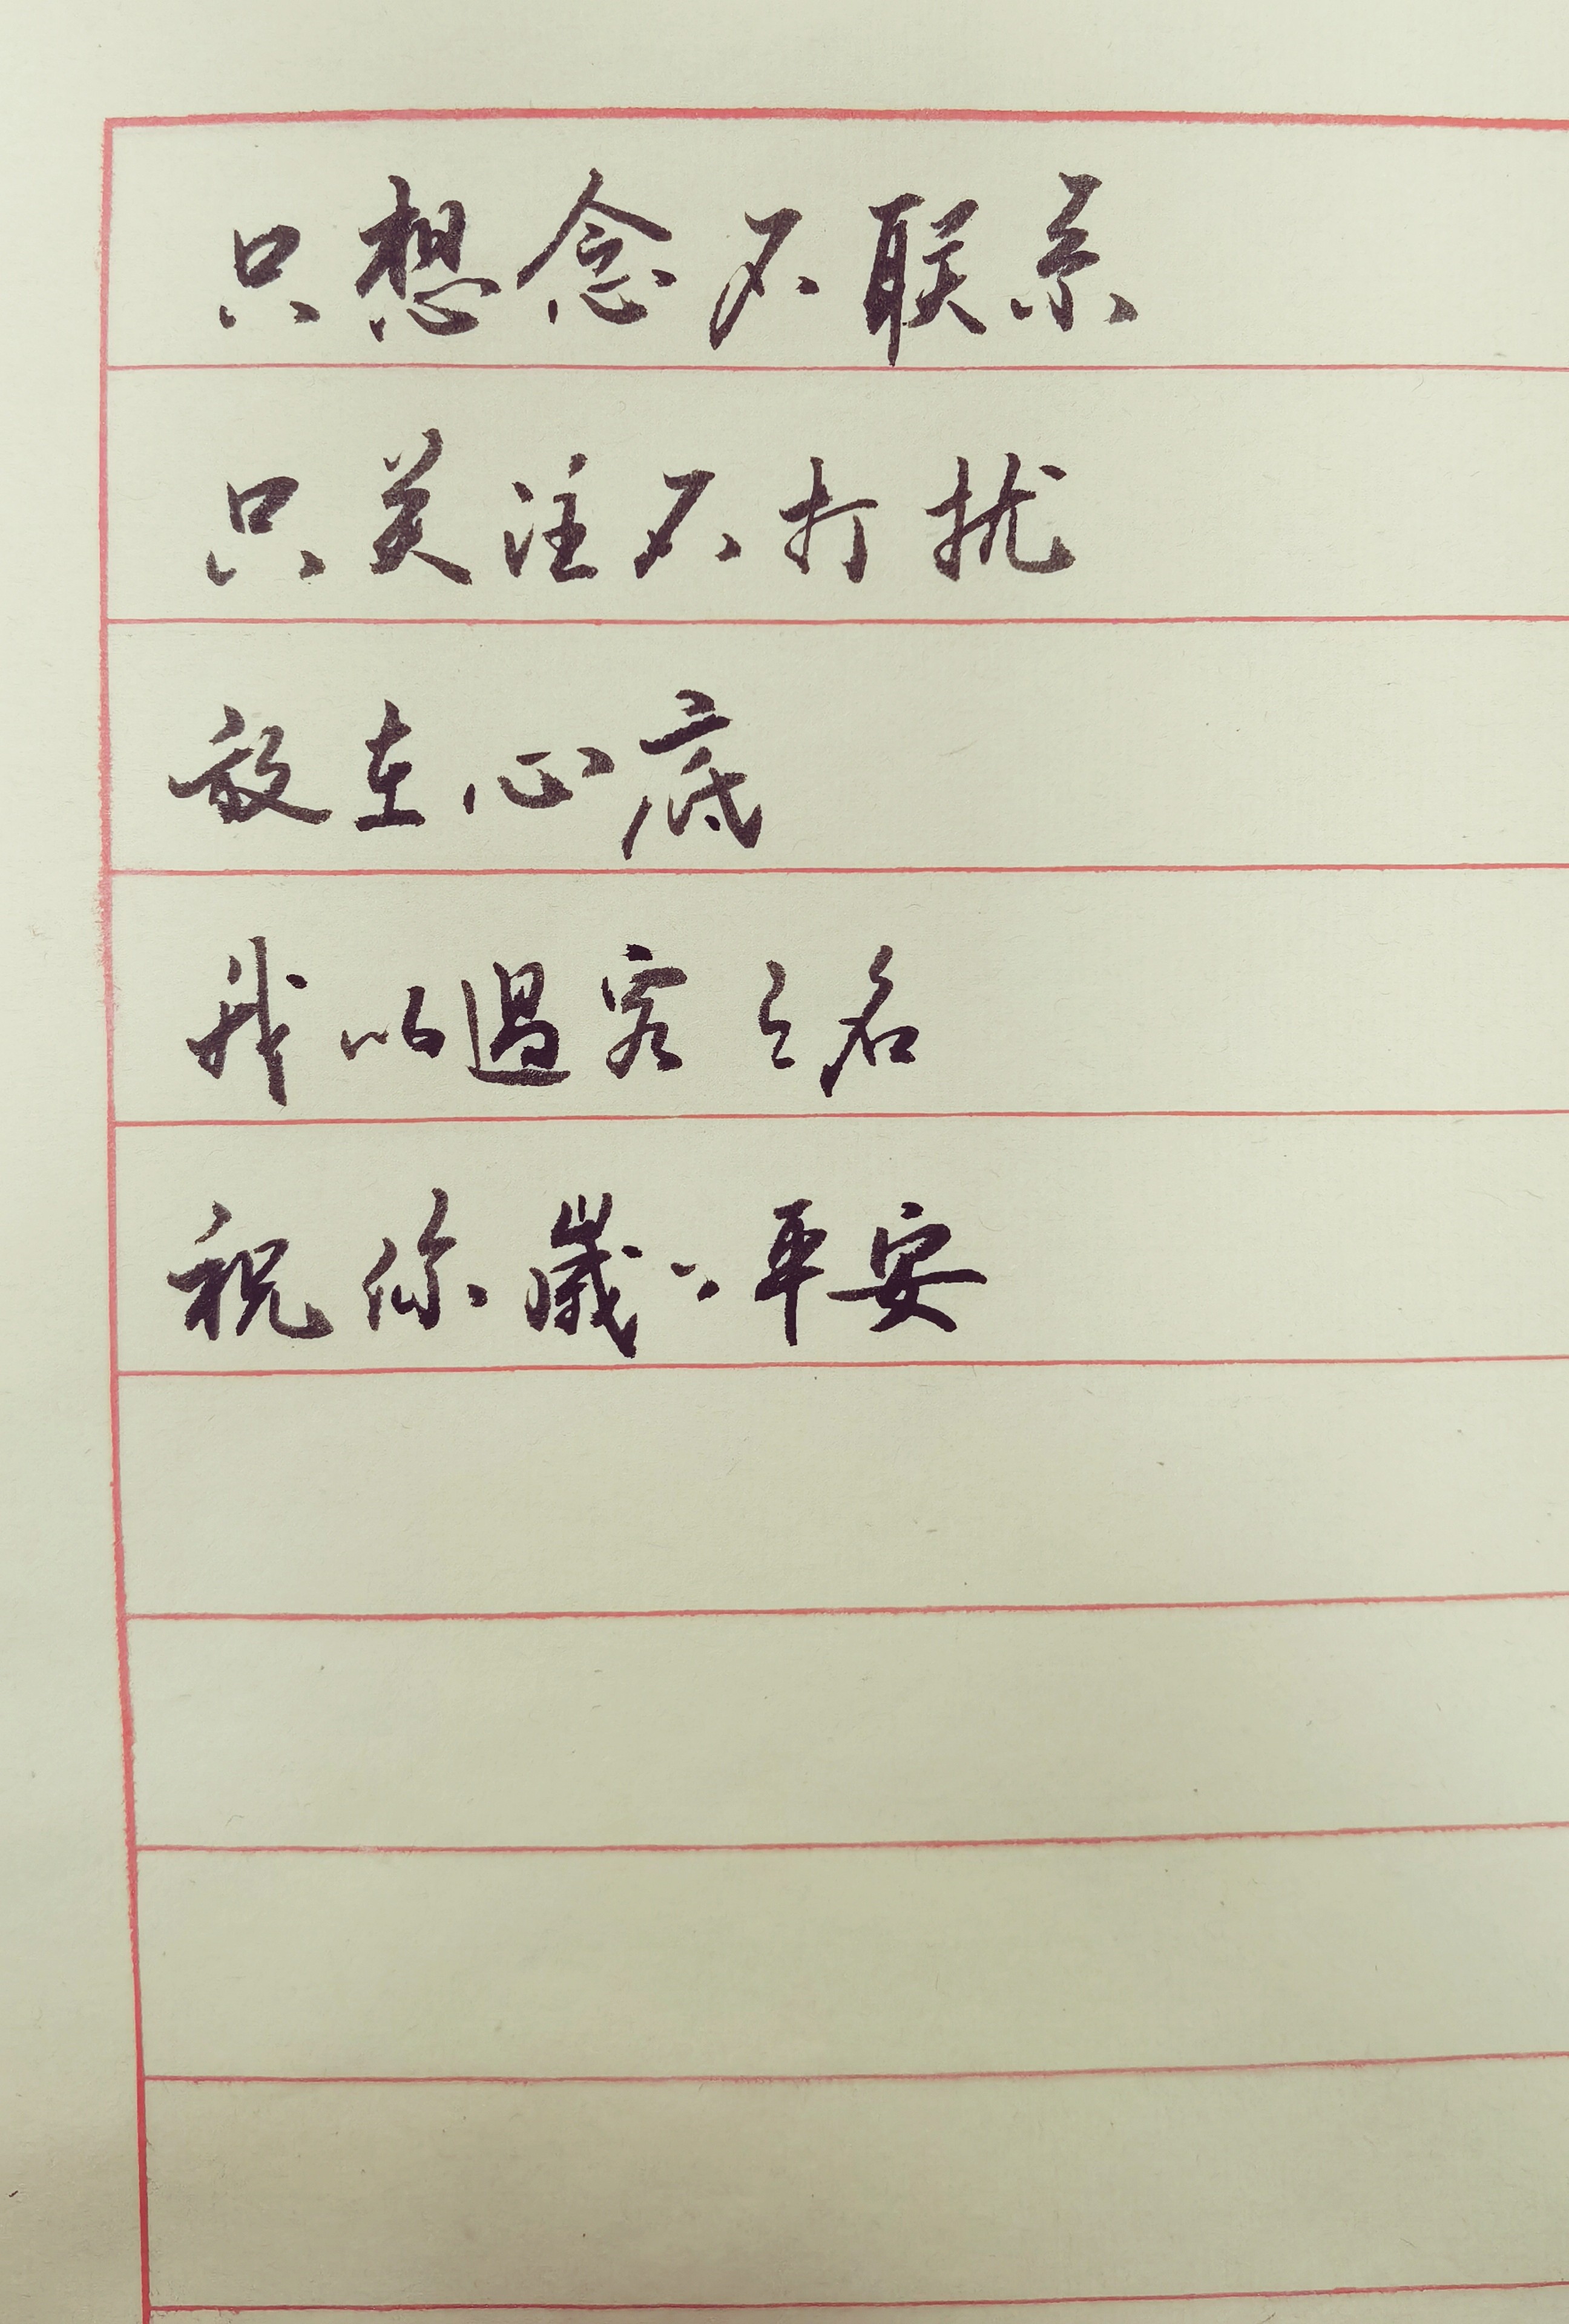 只想念不联系
只关注不打扰
放在心底
我以過客之名
祝你歲々平安